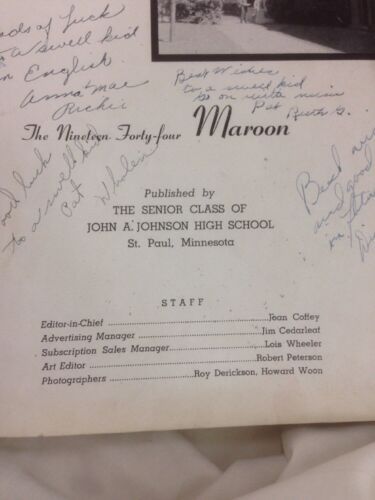 of luck
a swell kid
English.
Anna Mae
Richie
Best Wishes
to a swell kid
Pat
Ruth G.
The Nineteen Forty-four Maroon
good luck
to a swell kid
Pat Whalen
Best
and good
in
Published by
THE SENIOR CLASS OF
JOHN A. JOHNSON HIGH SCHOOL
St. Paul, Minnesota
STAFF
Editor-in-Chief ........ Joan Coffey
Advertising Manager ........ Jim Cedarleaf
Subscription Sales Manager ........ Lois Wheeler
Art Editor ........ Robert Peterson
Photographers ........ Roy Derickson, Howard Woon